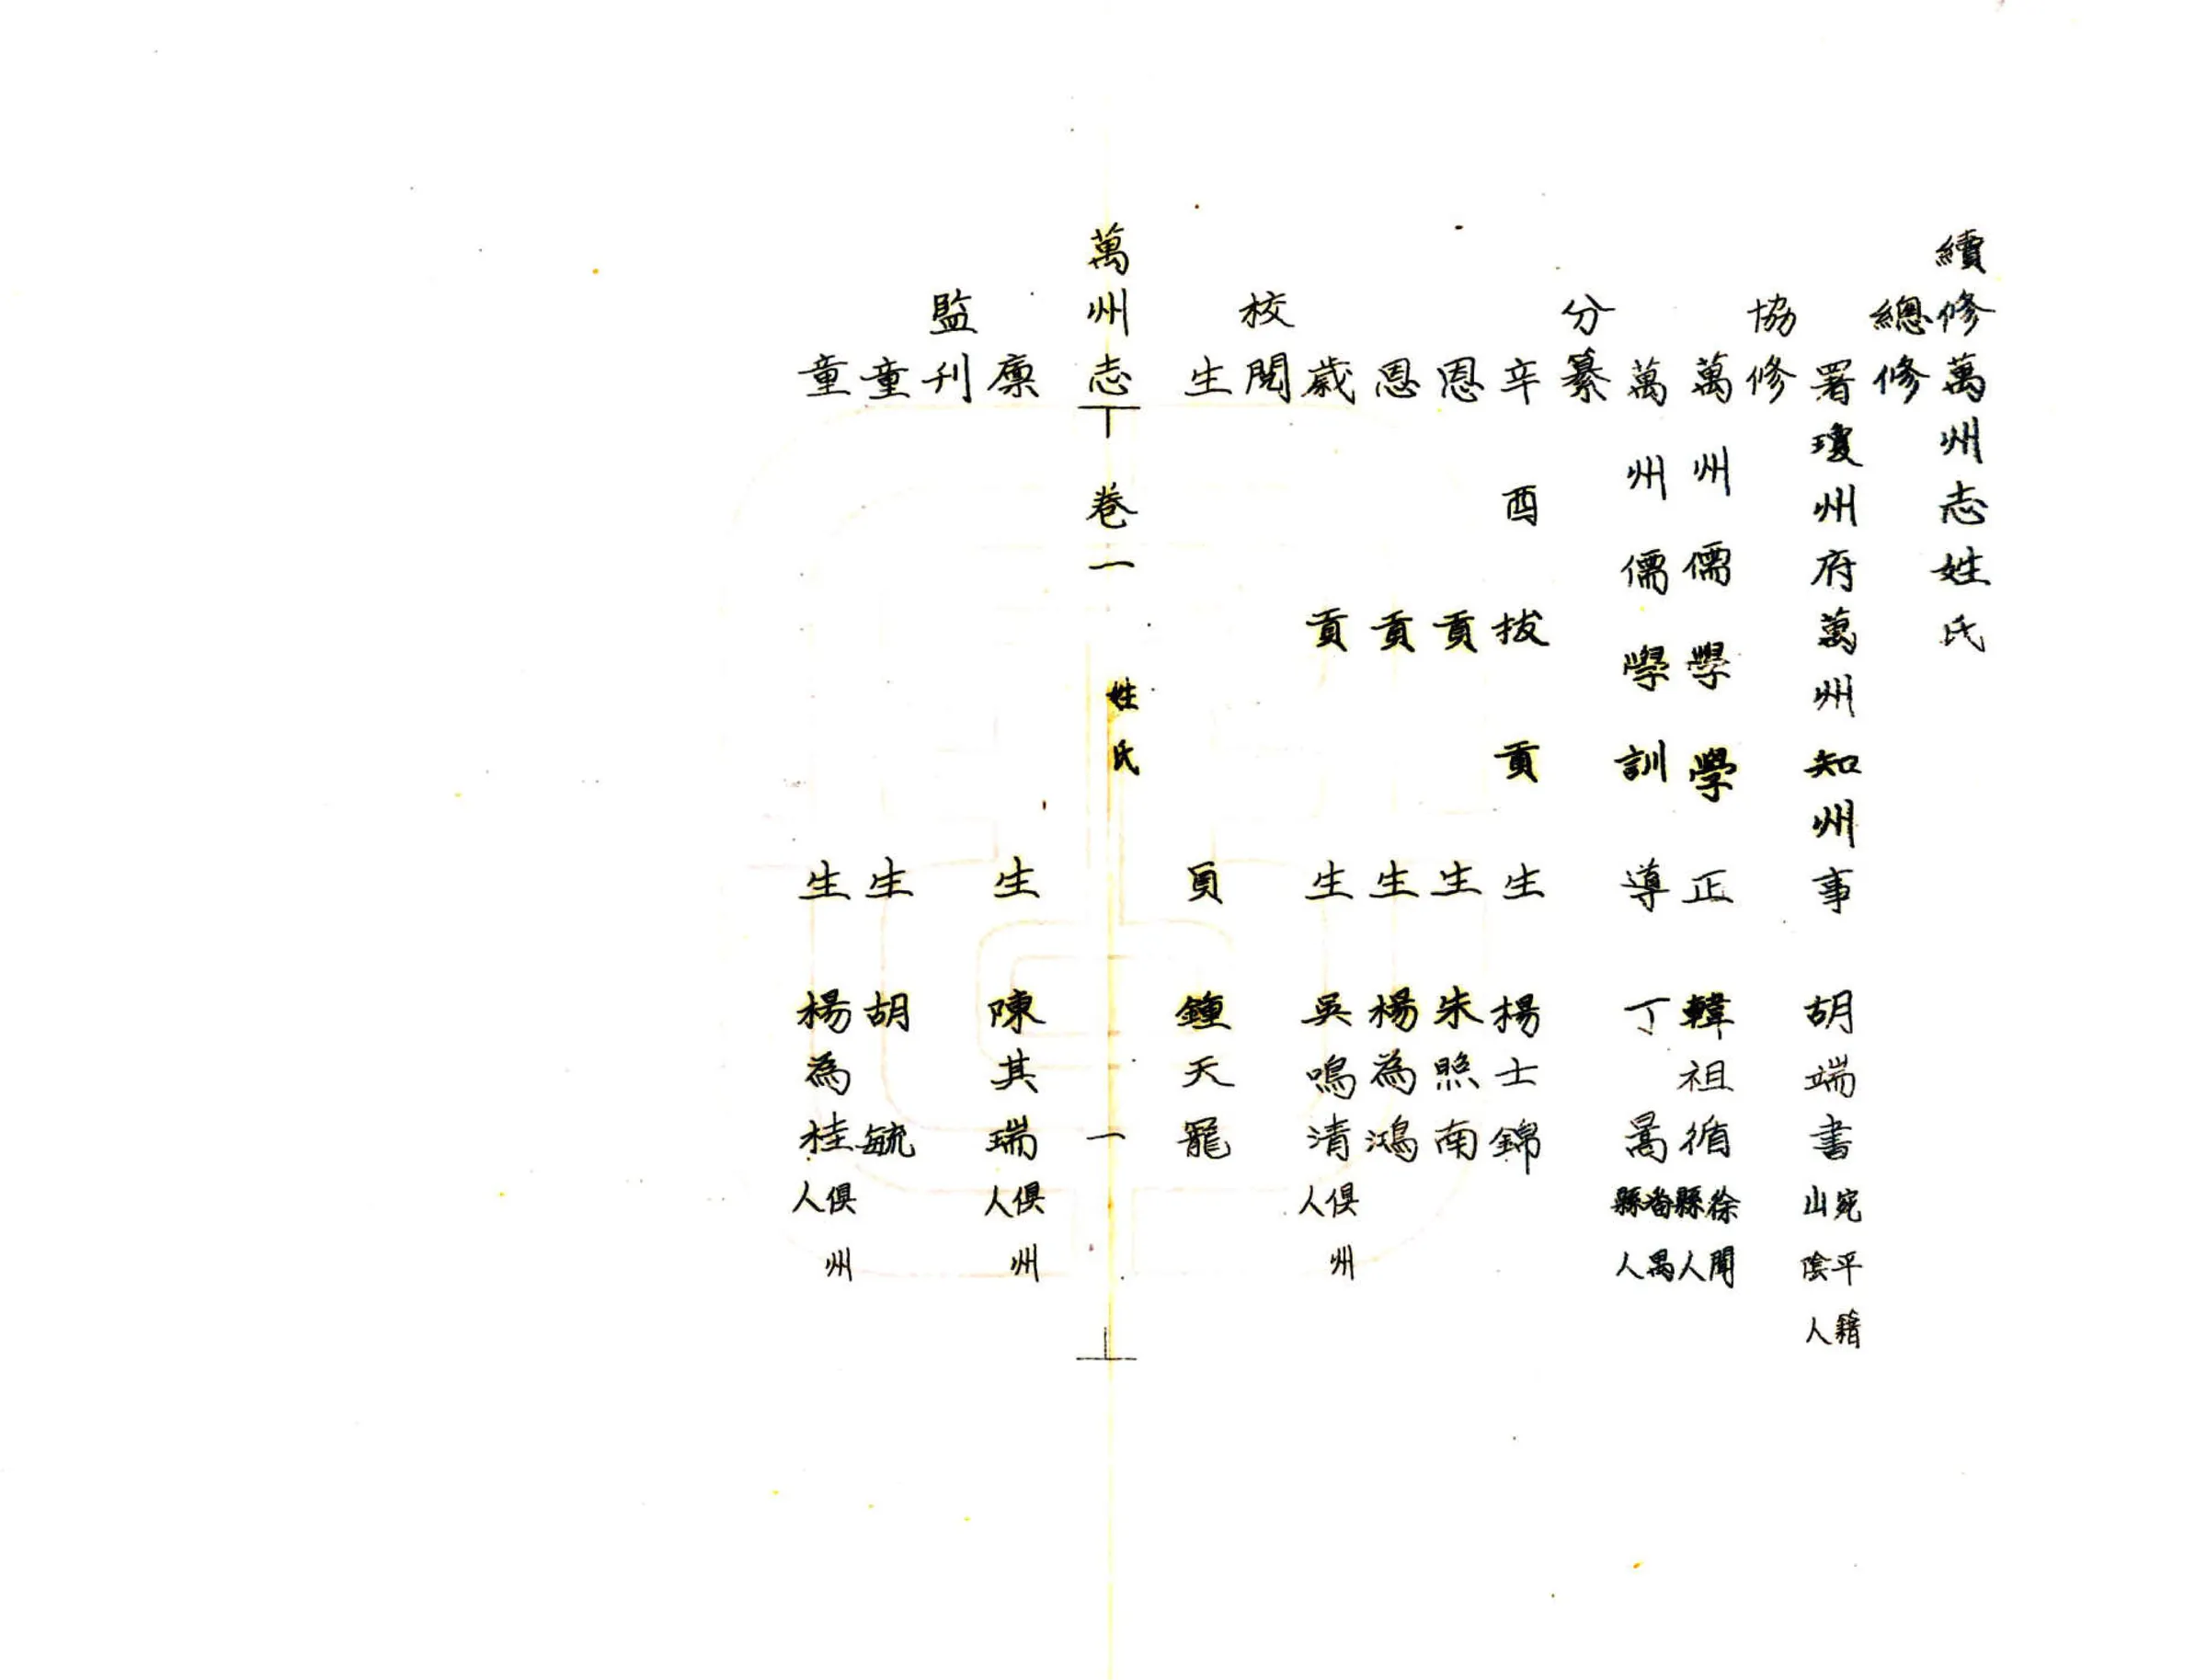 續修萬州志姓氏
總修
署瓊州府萬州知州事 胡端書 宛平籍山陰人
協修
萬州儒學學正 韓祖循 徐聞縣人
萬州儒學訓導 丁 暠 番禺縣人
分纂
辛酉拔貢生 楊士錦
恩貢生 朱照南
恩貢生 楊為鴻
歲貢生 吳鳴清 俱州人
校閱
生員 鍾天寵
萬州志 卷一 姓氏 一
廪生 陳其瑞 俱州人
監刊
童生 胡 毓
童生 楊為桂 俱州人